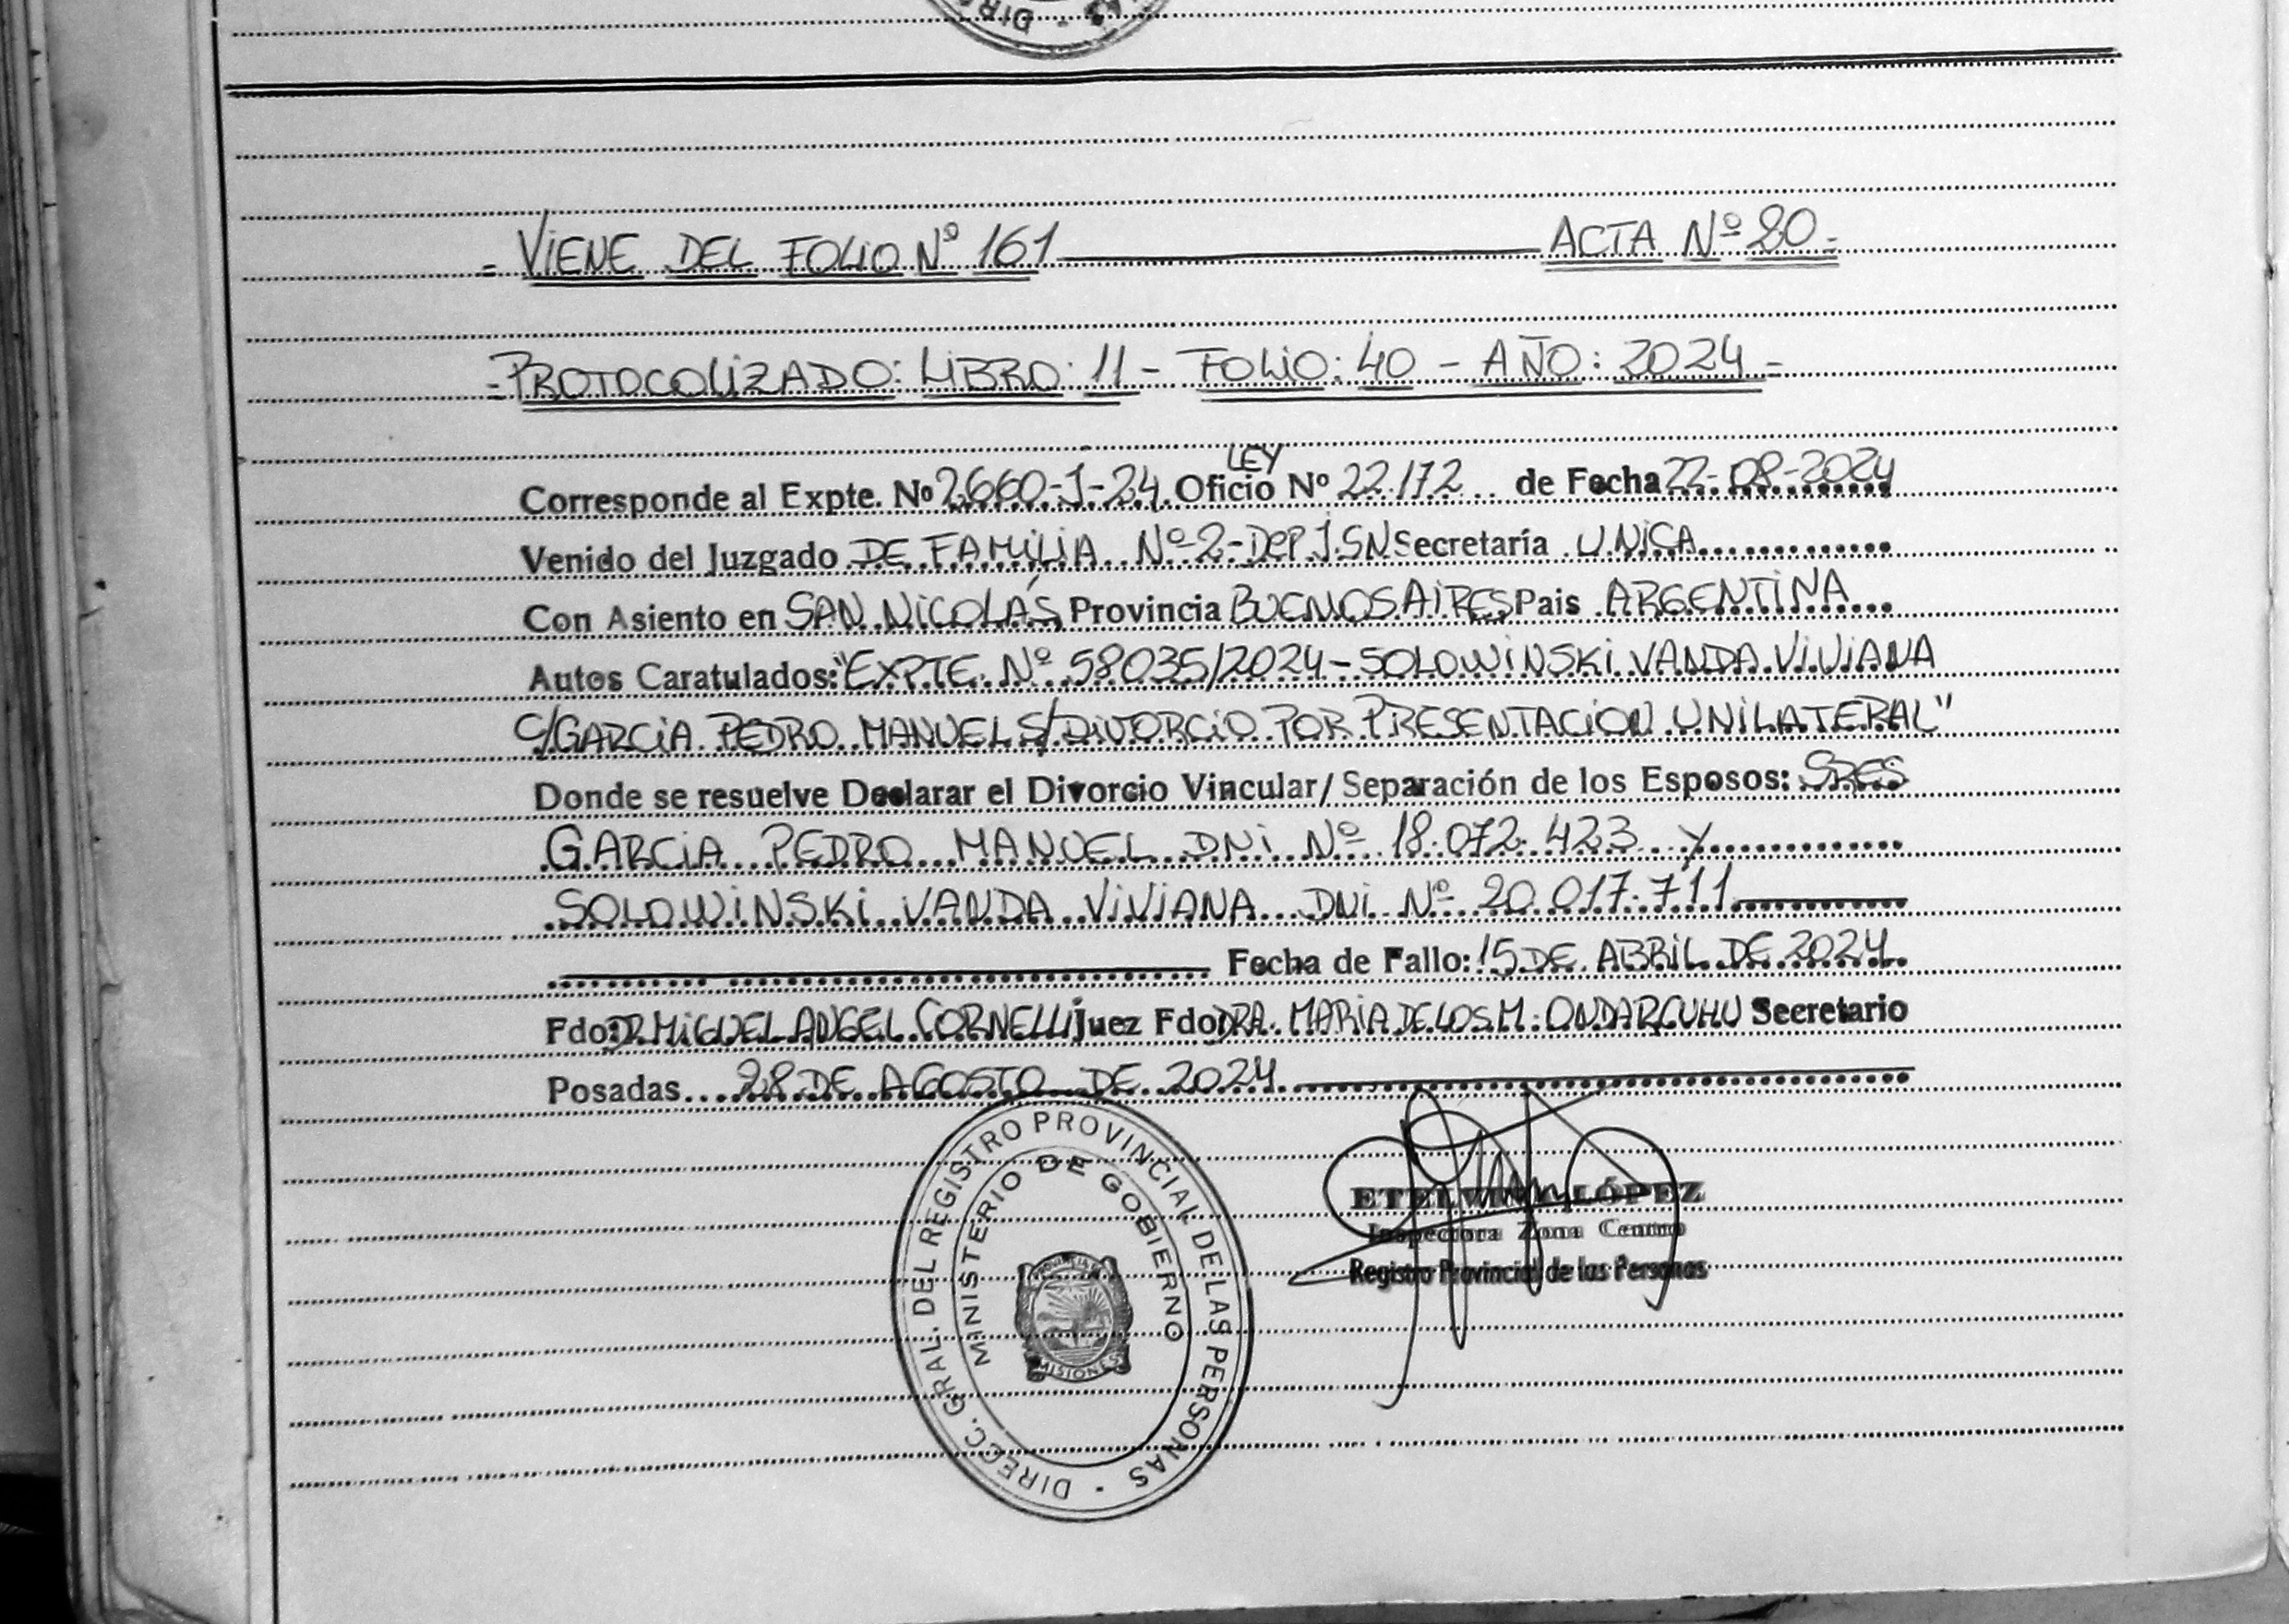 = VIENE DEL FOLIO Nº 161 ACTA Nº 80 =
= PROTOCOLIZADO: LIBRO: 11 - FOLIO: 40 - AÑO: 2024 =
LEY
Corresponde al Expte. Nº 2660-J-24. Oficio Nº 22.172 de Fecha 22-08-2024
Venido del Juzgado DE FAMILIA Nº 2-DEP J.SN Secretaría UNICA
Con Asiento en SAN NICOLÁS Provincia BUENOS AIRES Pais ARGENTINA
Autos Caratulados: "EXPTE. Nº 58035/2024-SOLOWINSKI VANDA VIVIANA
C/GARCIA PEDRO MANUEL S/DIVORCIO POR PRESENTACION UNILATERAL"
Donde se resuelve Declarar el Divorcio Vincular/Separación de los Esposos: SRES
GARCIA PEDRO MANUEL DNI Nº 18.072.423 y
SOLOWINSKI VANDA VIVIANA DNI Nº 20.017.711
Fecha de Fallo: 15 DE ABRIL DE 2024
Fdo: DR. MIGUEL ANGEL CORNELLI Juez Fdo: DRA. MARIA DE LOS M. ONDARCUHU Secretario
Posadas 28 DE AGOSTO DE 2024
DIRECC. GRAL. DEL REGISTRO PROVINCIAL DE LAS PERSONAS -
MINISTERIO DE GOBIERNO
MISIONES
LÓPEZ
Inspectora Zona Centro
Registro Provincial de las Personas